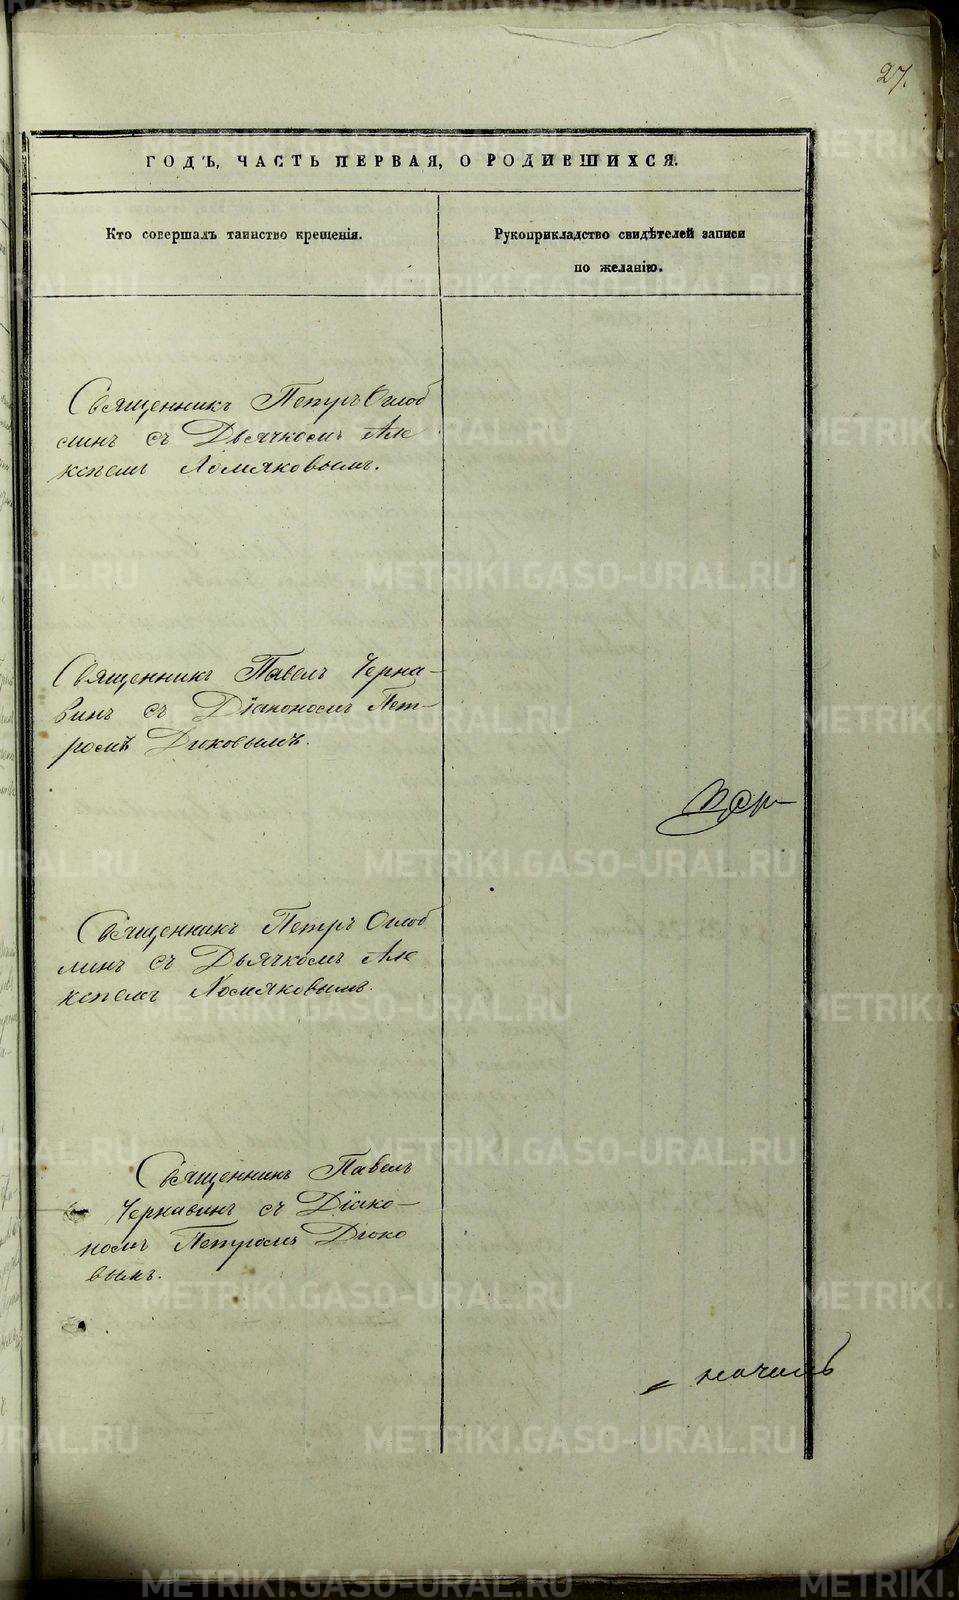 27.
ГОДЪ, ЧАСТЬ ПЕРВАЯ, О РОДИВШИХСЯ.
Кто совершалъ таинство крещенія.
Рукоприкладство свидѣтелей записи
по желанію.
Священникъ Петръ Оглоб
линъ съ Дьячкомъ Але
ксѣемъ Хомяковымъ.
Священникъ Павелъ Черна-
винъ съ Діакономъ Пет-
ромъ Дюковымъ.
Священникъ Петръ Оглоб
линъ съ Дьячкомъ Але
ксѣемъ Хомяковымъ.
Священникъ Павелъ
Чернавинъ съ Діако-
номъ Петромъ Дюко
вымъ.
METRIKI.GASO-URAL.RU